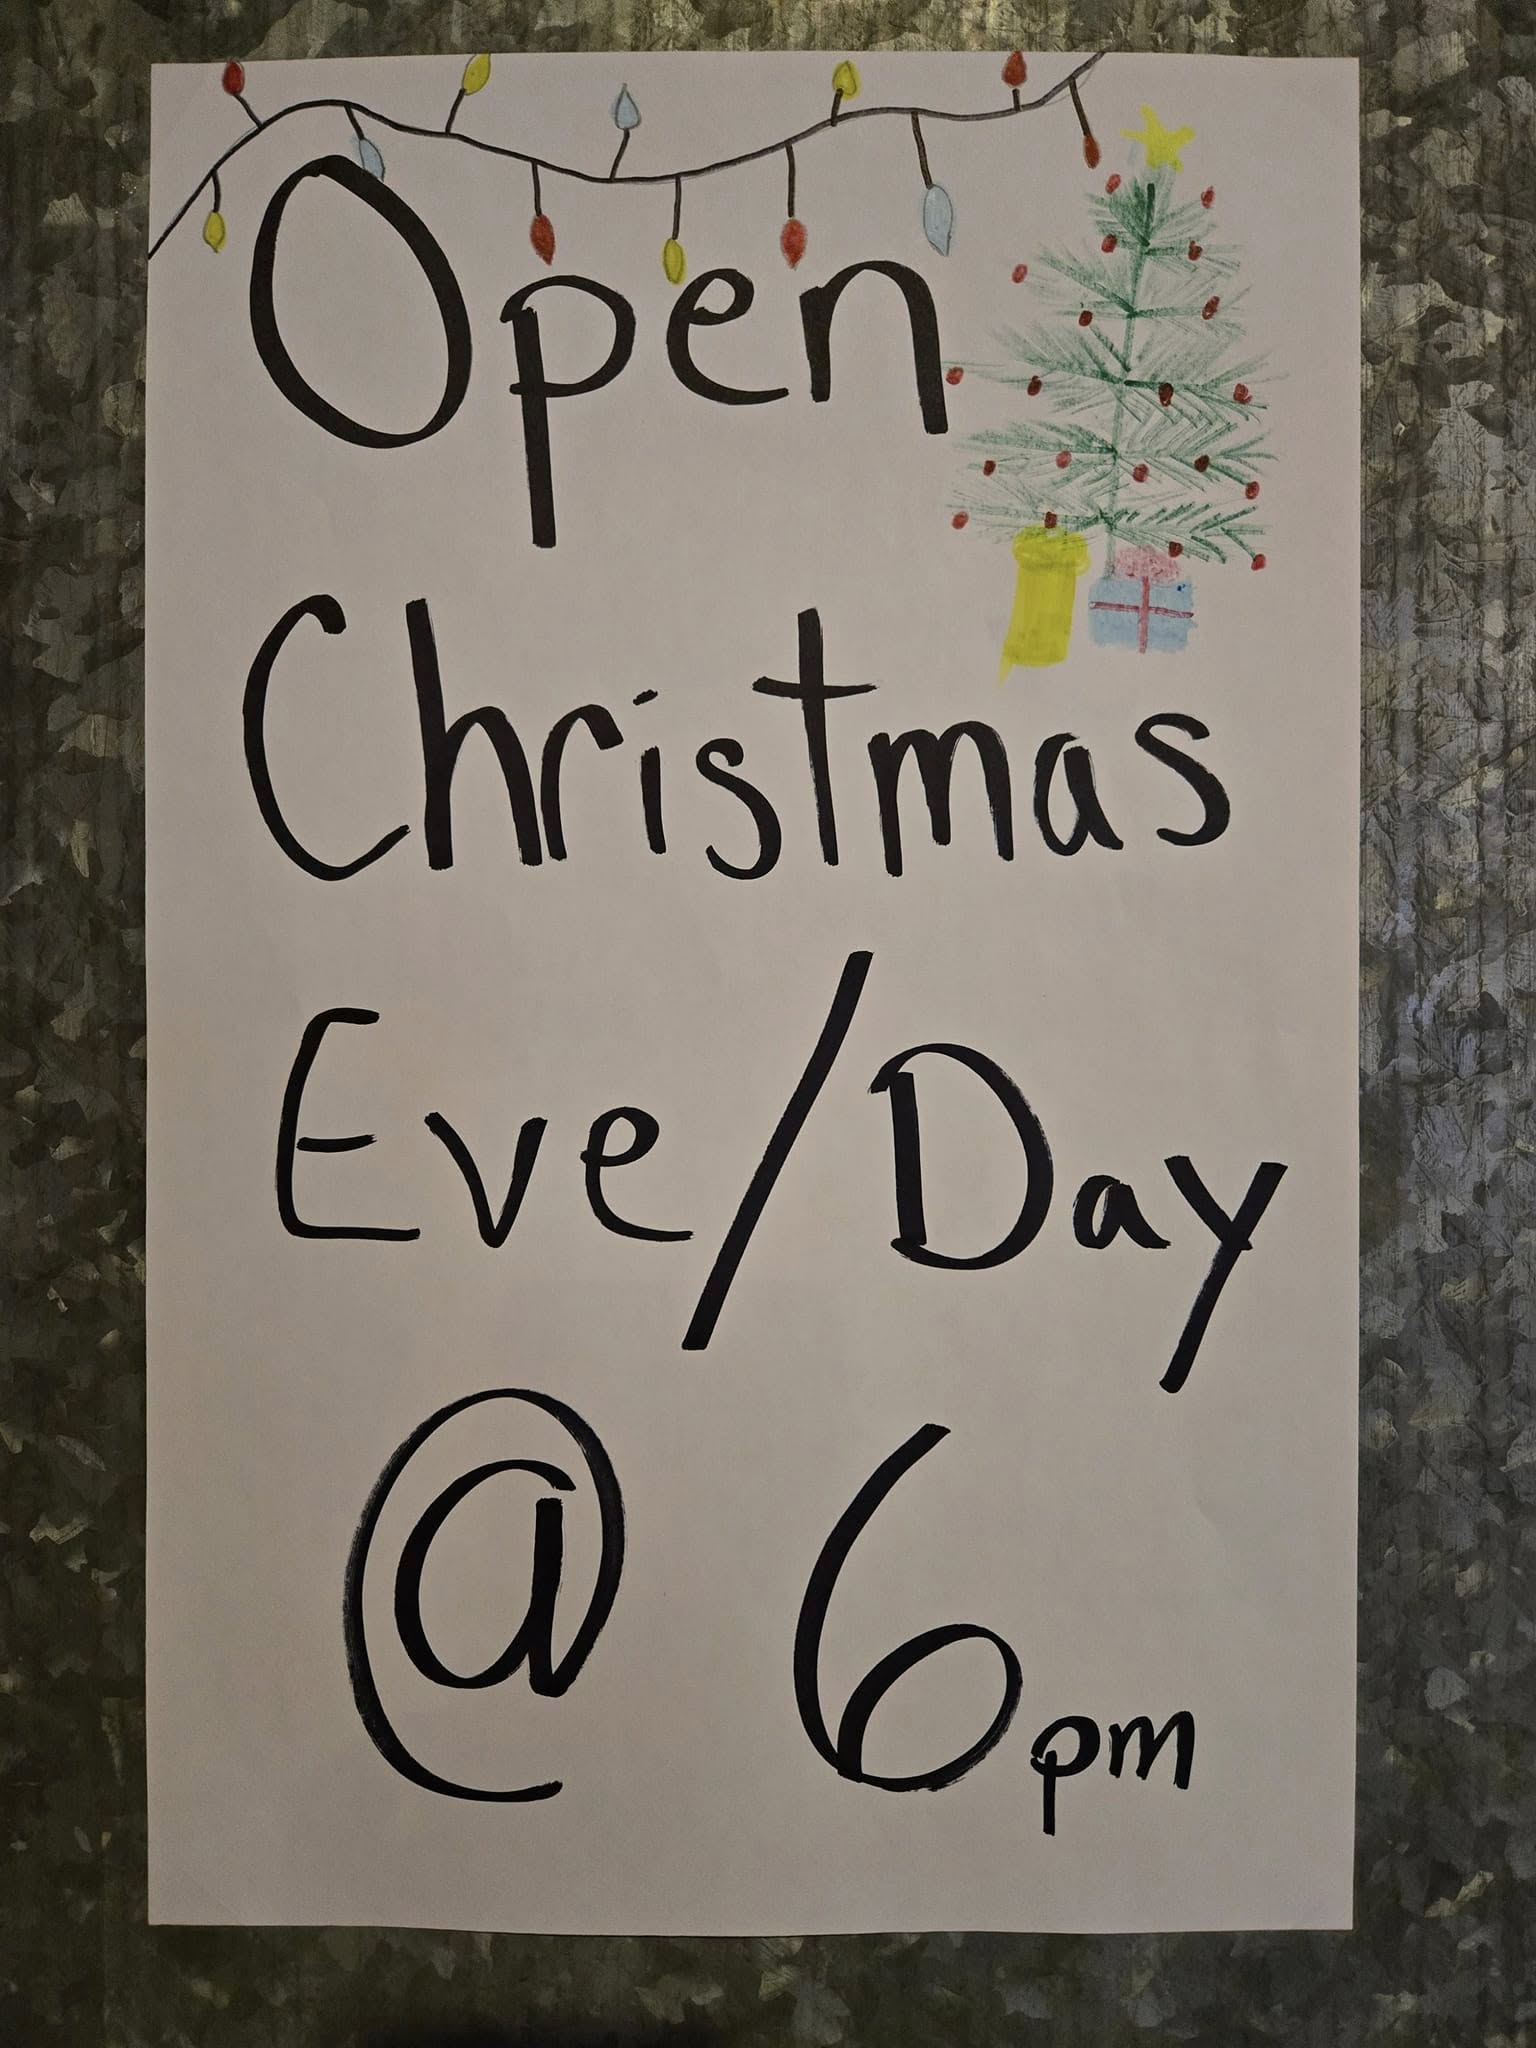 Open
Christmas
Eve/Day
@ 6pm